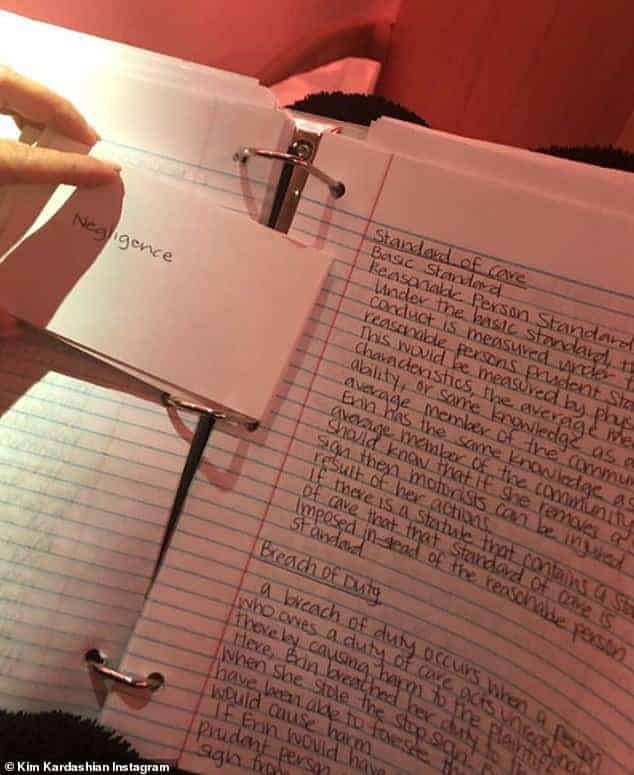 Negligence
Standard of care
Basic Standard
Reasonable Person Standard
Under the basic standard,
conduct is measured under
reasonable persons prudent
This would be measured by
characteristics, the average
ability, or same knowledge as a
average member of the
Erin has the same knowledge as
average member of the community
should know that if she removes a
sign then motorists can be injured
result of her actions.
If there is a statute that contains a
of care that that standard of care is
imposed instead of the reasonable person
standard
Breach of Duty
a breach of duty occurs when a person
who owes a duty of care acts
thereby causing harm to the plaintiff.
Here, Erin breached her duty
when she stole the stop sign.
have been able to foresee
would cause harm
If Erin would have
prudent person
sign
© Kim Kardashian Instagram